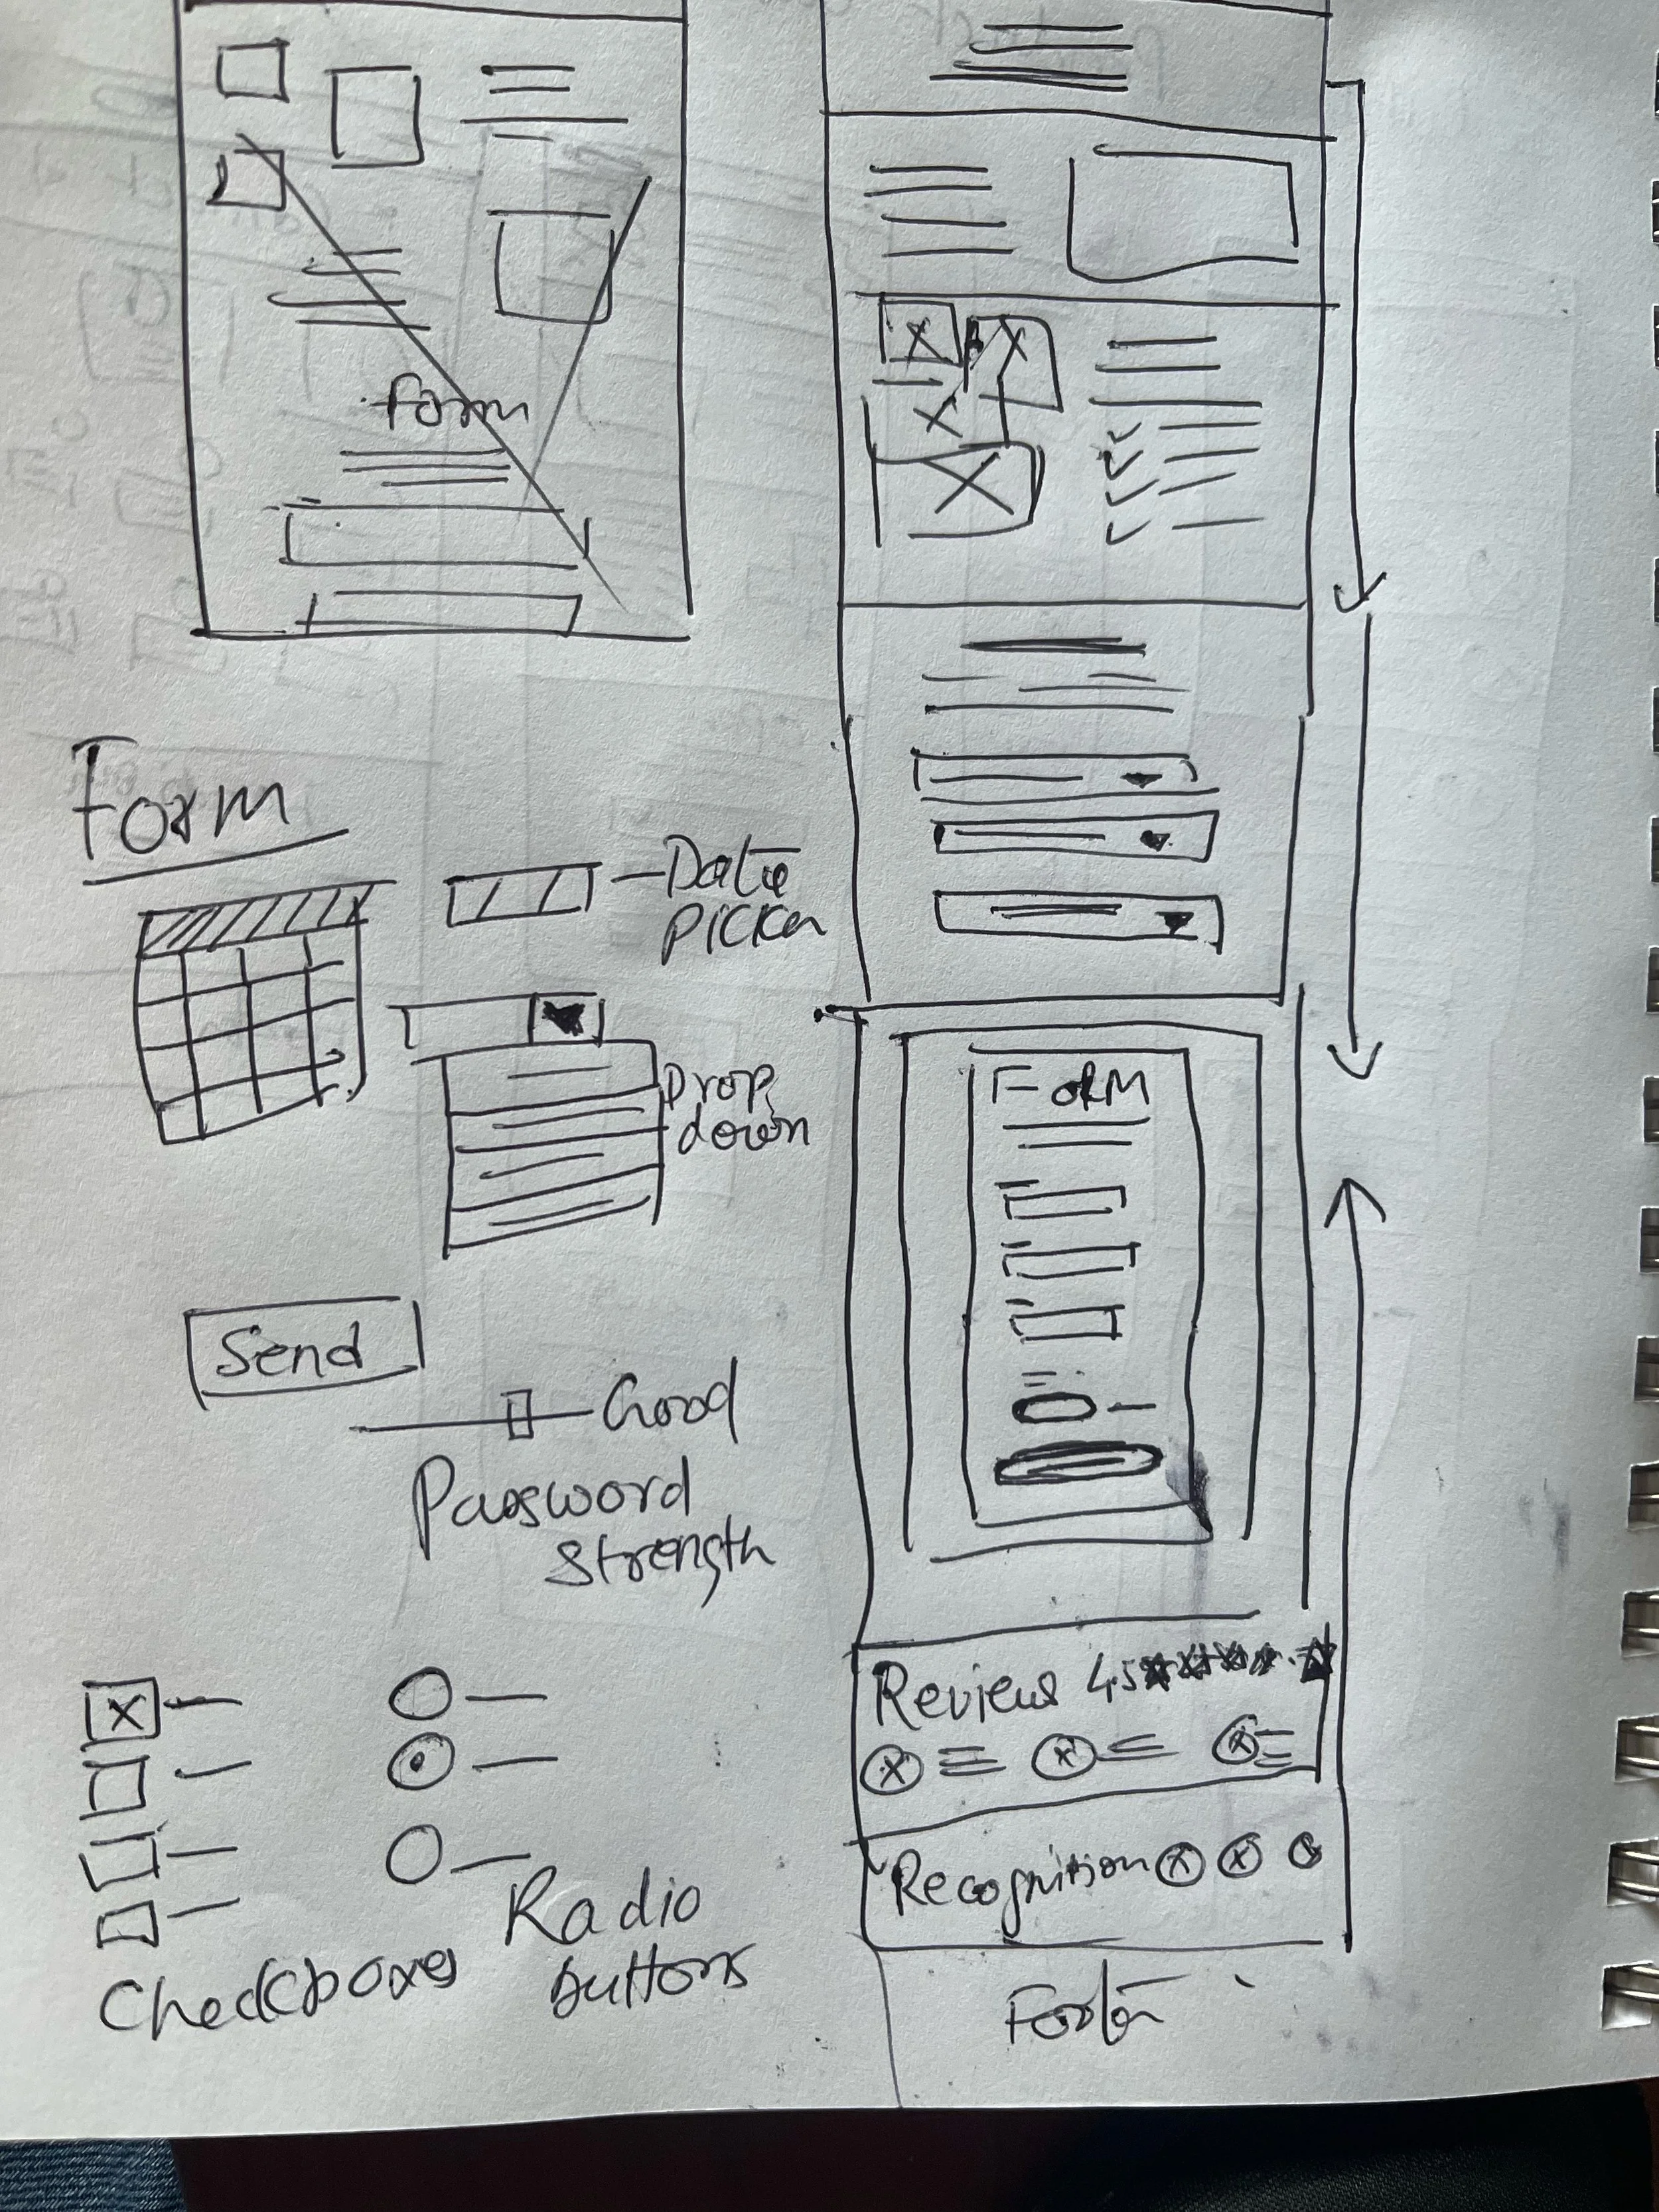 form
Form
Date
picker
Drop
down
Send
Good
Password
strength
Checkboxes
Radio
buttons
FORM
Reviews 4.5
Recognition
Footer